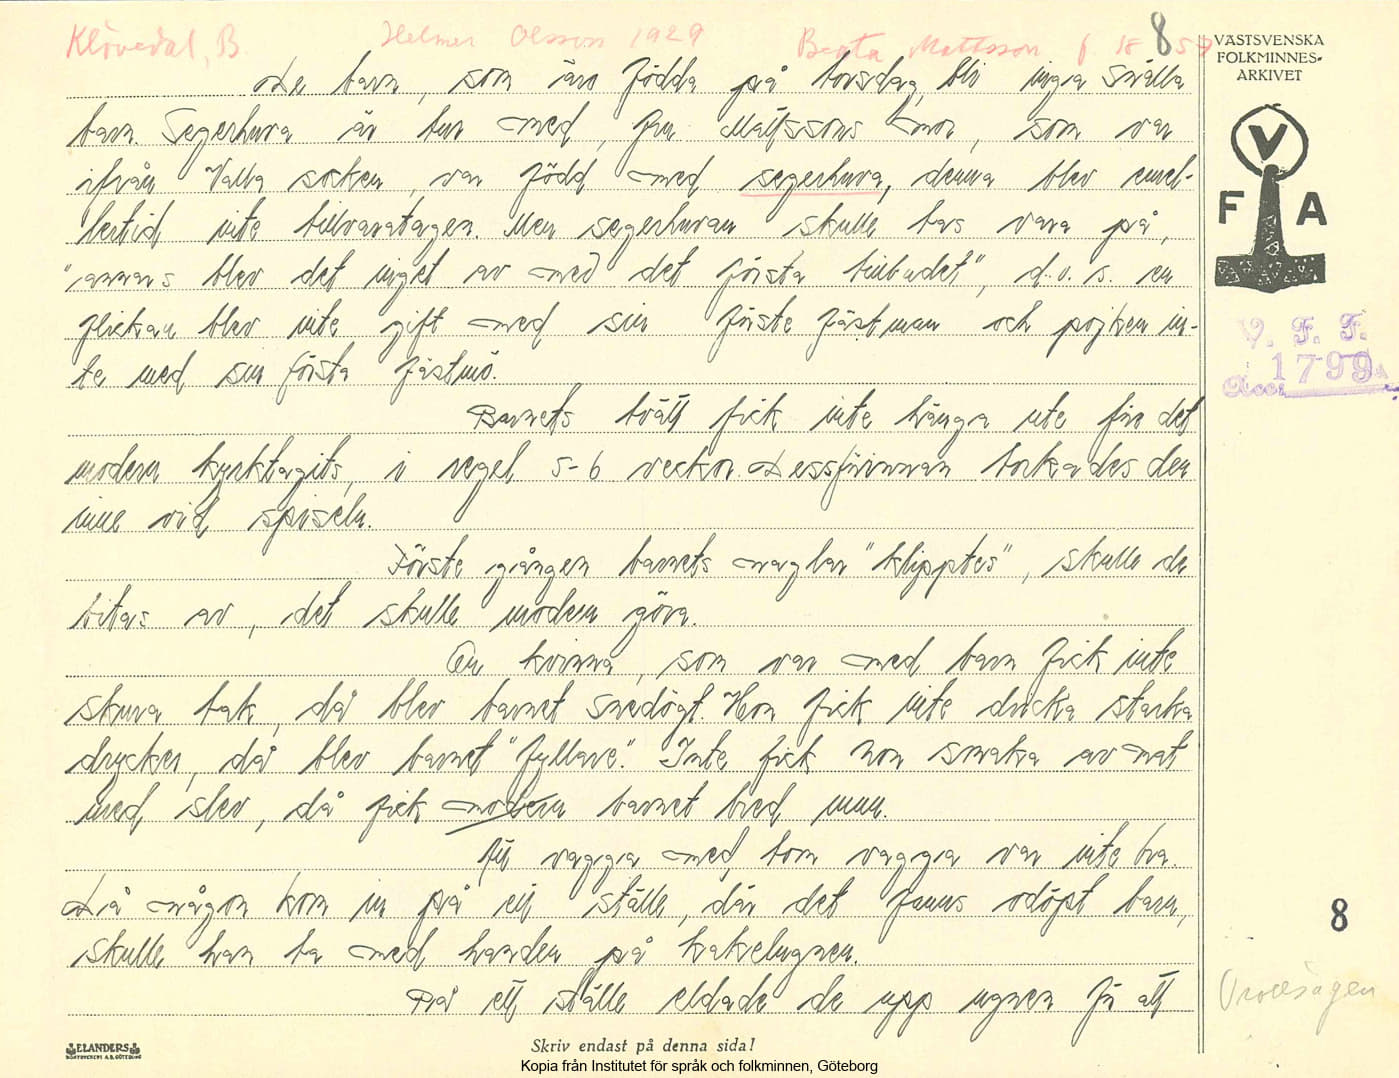 Klövedal, B. Helmer Olsson 1929 Beata Mattsson f. 1857
8
VÄSTSVENSKA
FOLKMINNES-
ARKIVET
V
F A
V. F. F.
Acc. 1799
De barn, som äro födda på torsdag, bli inga snälla
barn. Segerhuva är tur med, fru Mattssons mor, som var
ifrån Valla socken, var född med segerhuva, denna blev emel-
lertid inte tillvaratagen. Men segerhuvan skulle tas vara på,
"annars blev det inget av med det första tillbudet", d.v.s. en
flickan blev inte gift med sin förste fästman och pojken in-
te med sin första fästmö.
Barnets tvätt fick inte hänga ute förr det
modern kyrktagits, i regel 5-6 veckor. Dessförinnan torkades den
inne vid spiseln.
Förste gången barnets naglar "klipptes", skulle de
bitas av, det skulle modern göra.
En kvinna, som var med barn fick inte
skura tak, då blev barnet snedögt. Hon fick inte dricka starka
drycker, då blev barnet "fyllare". Inte fick hon smaka av mat
med slev, då fick modern barnet bred mun.
Att vagga med tom vagga var inte bra.
Då någon kom in på ett ställe, där det fanns odöpt barn,
skulle han ta med handen på kakelugnen.
På ett ställe eldade de upp ugnen för att
8
Skriv endast på denna sida!
ELANDERS
BOKTRYCKERI A.B. GÖTEBORG
Kopia från Institutet för språk och folkminnen, Göteborg